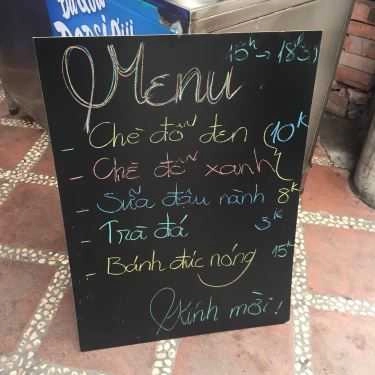 Menu
15h → 18h30
- Chè đỗ đen (10k
- Chè đỗ xanh
- Sữa đậu nành 8k
- Trà đá 3k
- Bánh đúc nóng 15k
Kính mời!